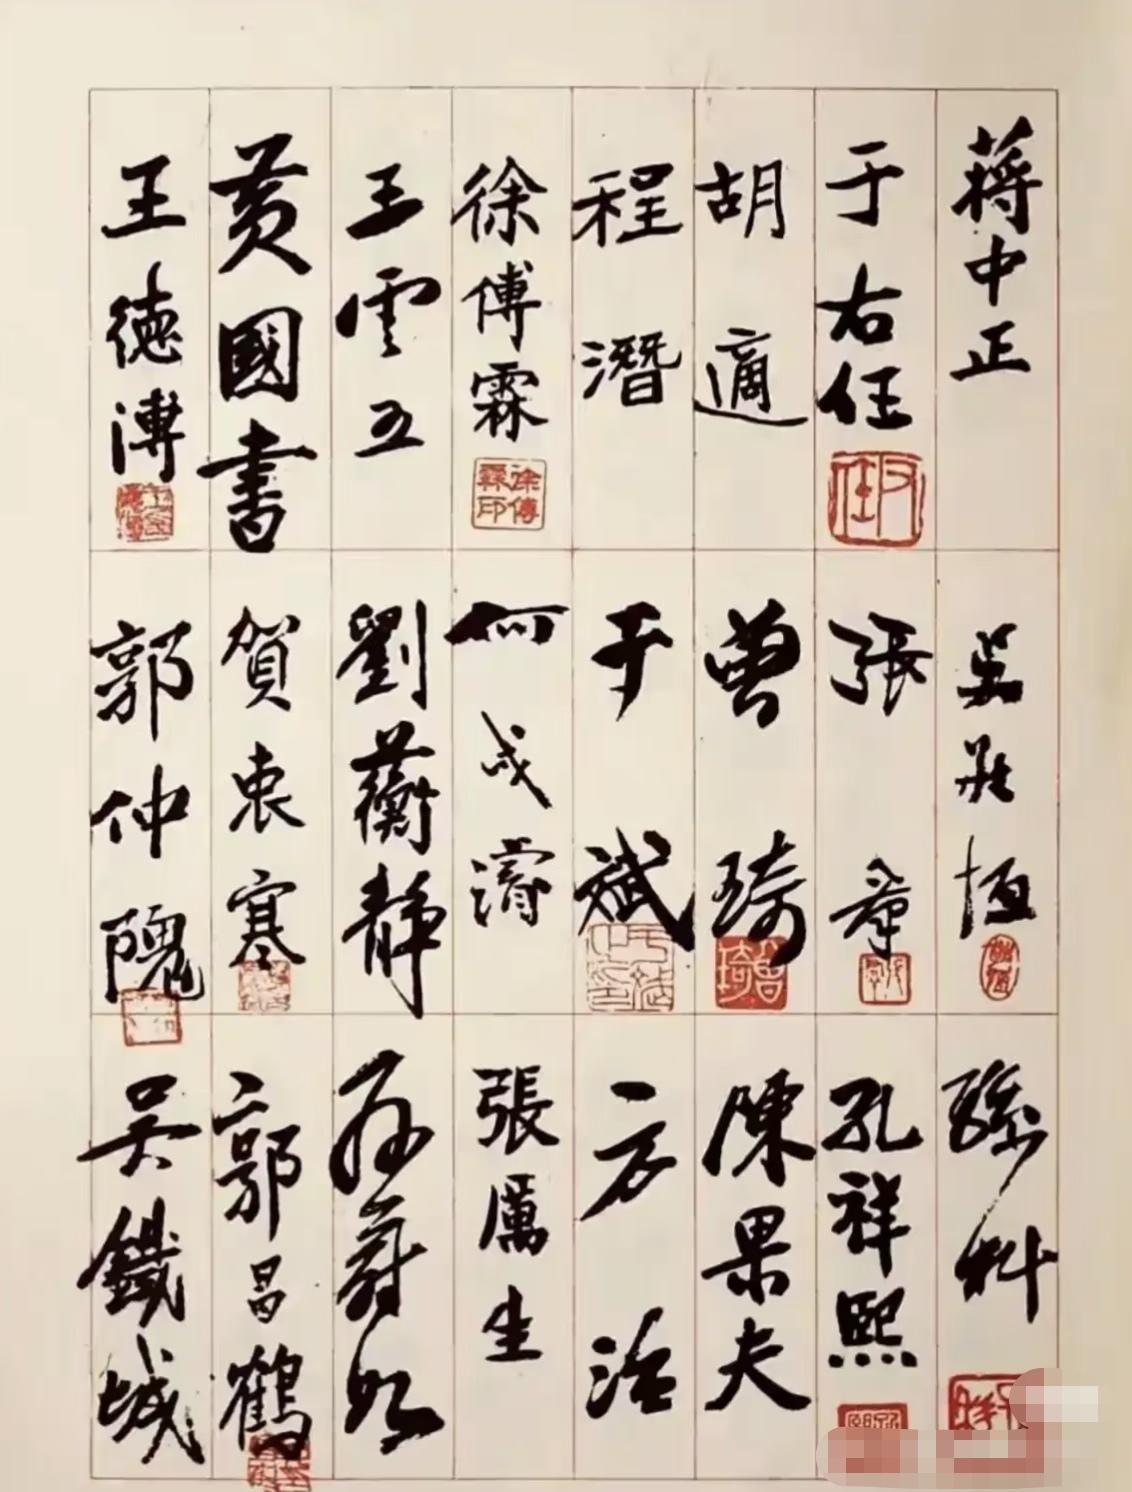 蔣中正
于右任
右任
胡適
程潛
徐傅霖
徐傅霖印
王雲五
黃國書
王德溥
吳敬恆
張羣
曾琦
曾琦
于斌
何成濬
劉蘅靜
賀衷寒
郭仲隗
孫科
孔祥熙
陳果夫
方治
張厲生
孫蔚如
郭昌鶴
吳鐵城